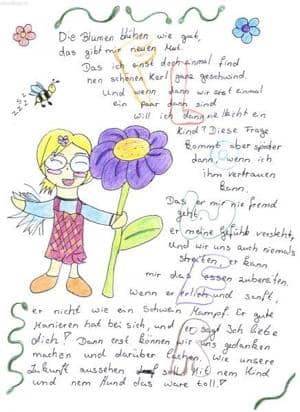 Die Blumen blühen wie gut,
das gibt mir neuen Mut.
Das ich einst doch einmal find
nen schönen Kerl ganz geschwind.
Und wenn dann wir erst einmal
ein paar dann sind
Will ich dann ne Nacht ein
Kind? Diese Frage
kommt aber später
dann, wenn ich
ihm vertrauen
kann.
Das er mir nie fremd
geht,
er meine Gefühle versteht,
und wir uns auch niemals
streiten, er kann
mir das essen zubereiten.
wenn er ehrlich und sanft,
er nicht wie ein Schwein Mampf. Er gute
Manieren hat bei sich, und er sagt Ich liebe
dich? Dann erst können wir uns gedanken
machen und darüber lachen. Wie unsere
Zukunft aussehen soll. Mit nem Kind
und nem Hund das wäre toll!